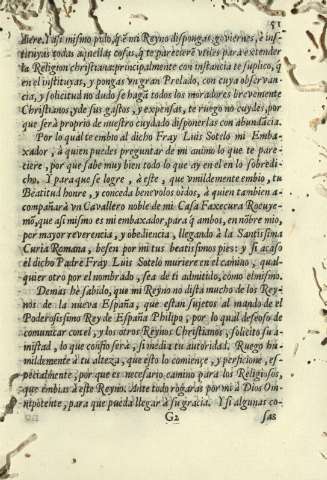 51
diere. Y asi mismo pido, q̃ è mi Reyno dispongas, govierneS, è ins-
tituyas todas aquellas cosas, q̃ te parecierẽ vtiles para extender
la Religion christiana: principalmente con instancia te suplico, q̃
en el instituyas, y pongas vn gran Prelado, con cuya observan
cia, y solicitud no dudo se hagã todos los moradores brevemente
Christianos, y de sus gastos, y expensas, te ruego no cuydes, por
que serà proprio de nuestro cuydado disponerlas con abundãcia.
Por lo qual te embio al dicho Fray Luis Sotelo mi Emba-
xador, à quien puedes preguntar de mi animo lo que te pare-
ciere, por que sabe muy bien todo lo que ay en el en lo sobredi-
cho. Y para que se logre, à este, que vmildemente embio, tu
Beatitud honre, y conceda benevolos oidos, à quien tambien a-
compañarà vn Cavallero noble de mi Casa Faxecura Rocuye-
mõ, que asi mismo es mi embaxador, para q̃ ambos, en nõbre mio,
por mayor reverencia, y obediencia, llegãdo à la Santissima
Curia Romana, besen por mi tus beatissimos pies: y si acaso
el dicho Padre Fray Luis Sotelo muriere en el camino, qual-
quier otro por el nombrado, sea de ti admitido, como el mismo.
Demàs hè sabido, que mi Reyno no dista mucho de los Rey-
nos de la nueva España, que estan sujetos al mando de el
Poderosissimo Rey de España Philipo, por lo qual deseoso de
comunicar con el, y los otros Reynos Christianos, solicito su a-
mistad, lo que confio serà, si media tu autoridad. Ruego hu-
mildemente à tu alteza, que esto lo comiençe, y perficione, es-
pecialmente, por que es necesario camino para los Religiosos,
que embias à este Reyno. Ante todo rogaras por mi à Dios Om-
nipotente, para que pueda llegar à su gracia. Y si algunas co-
G2
sas